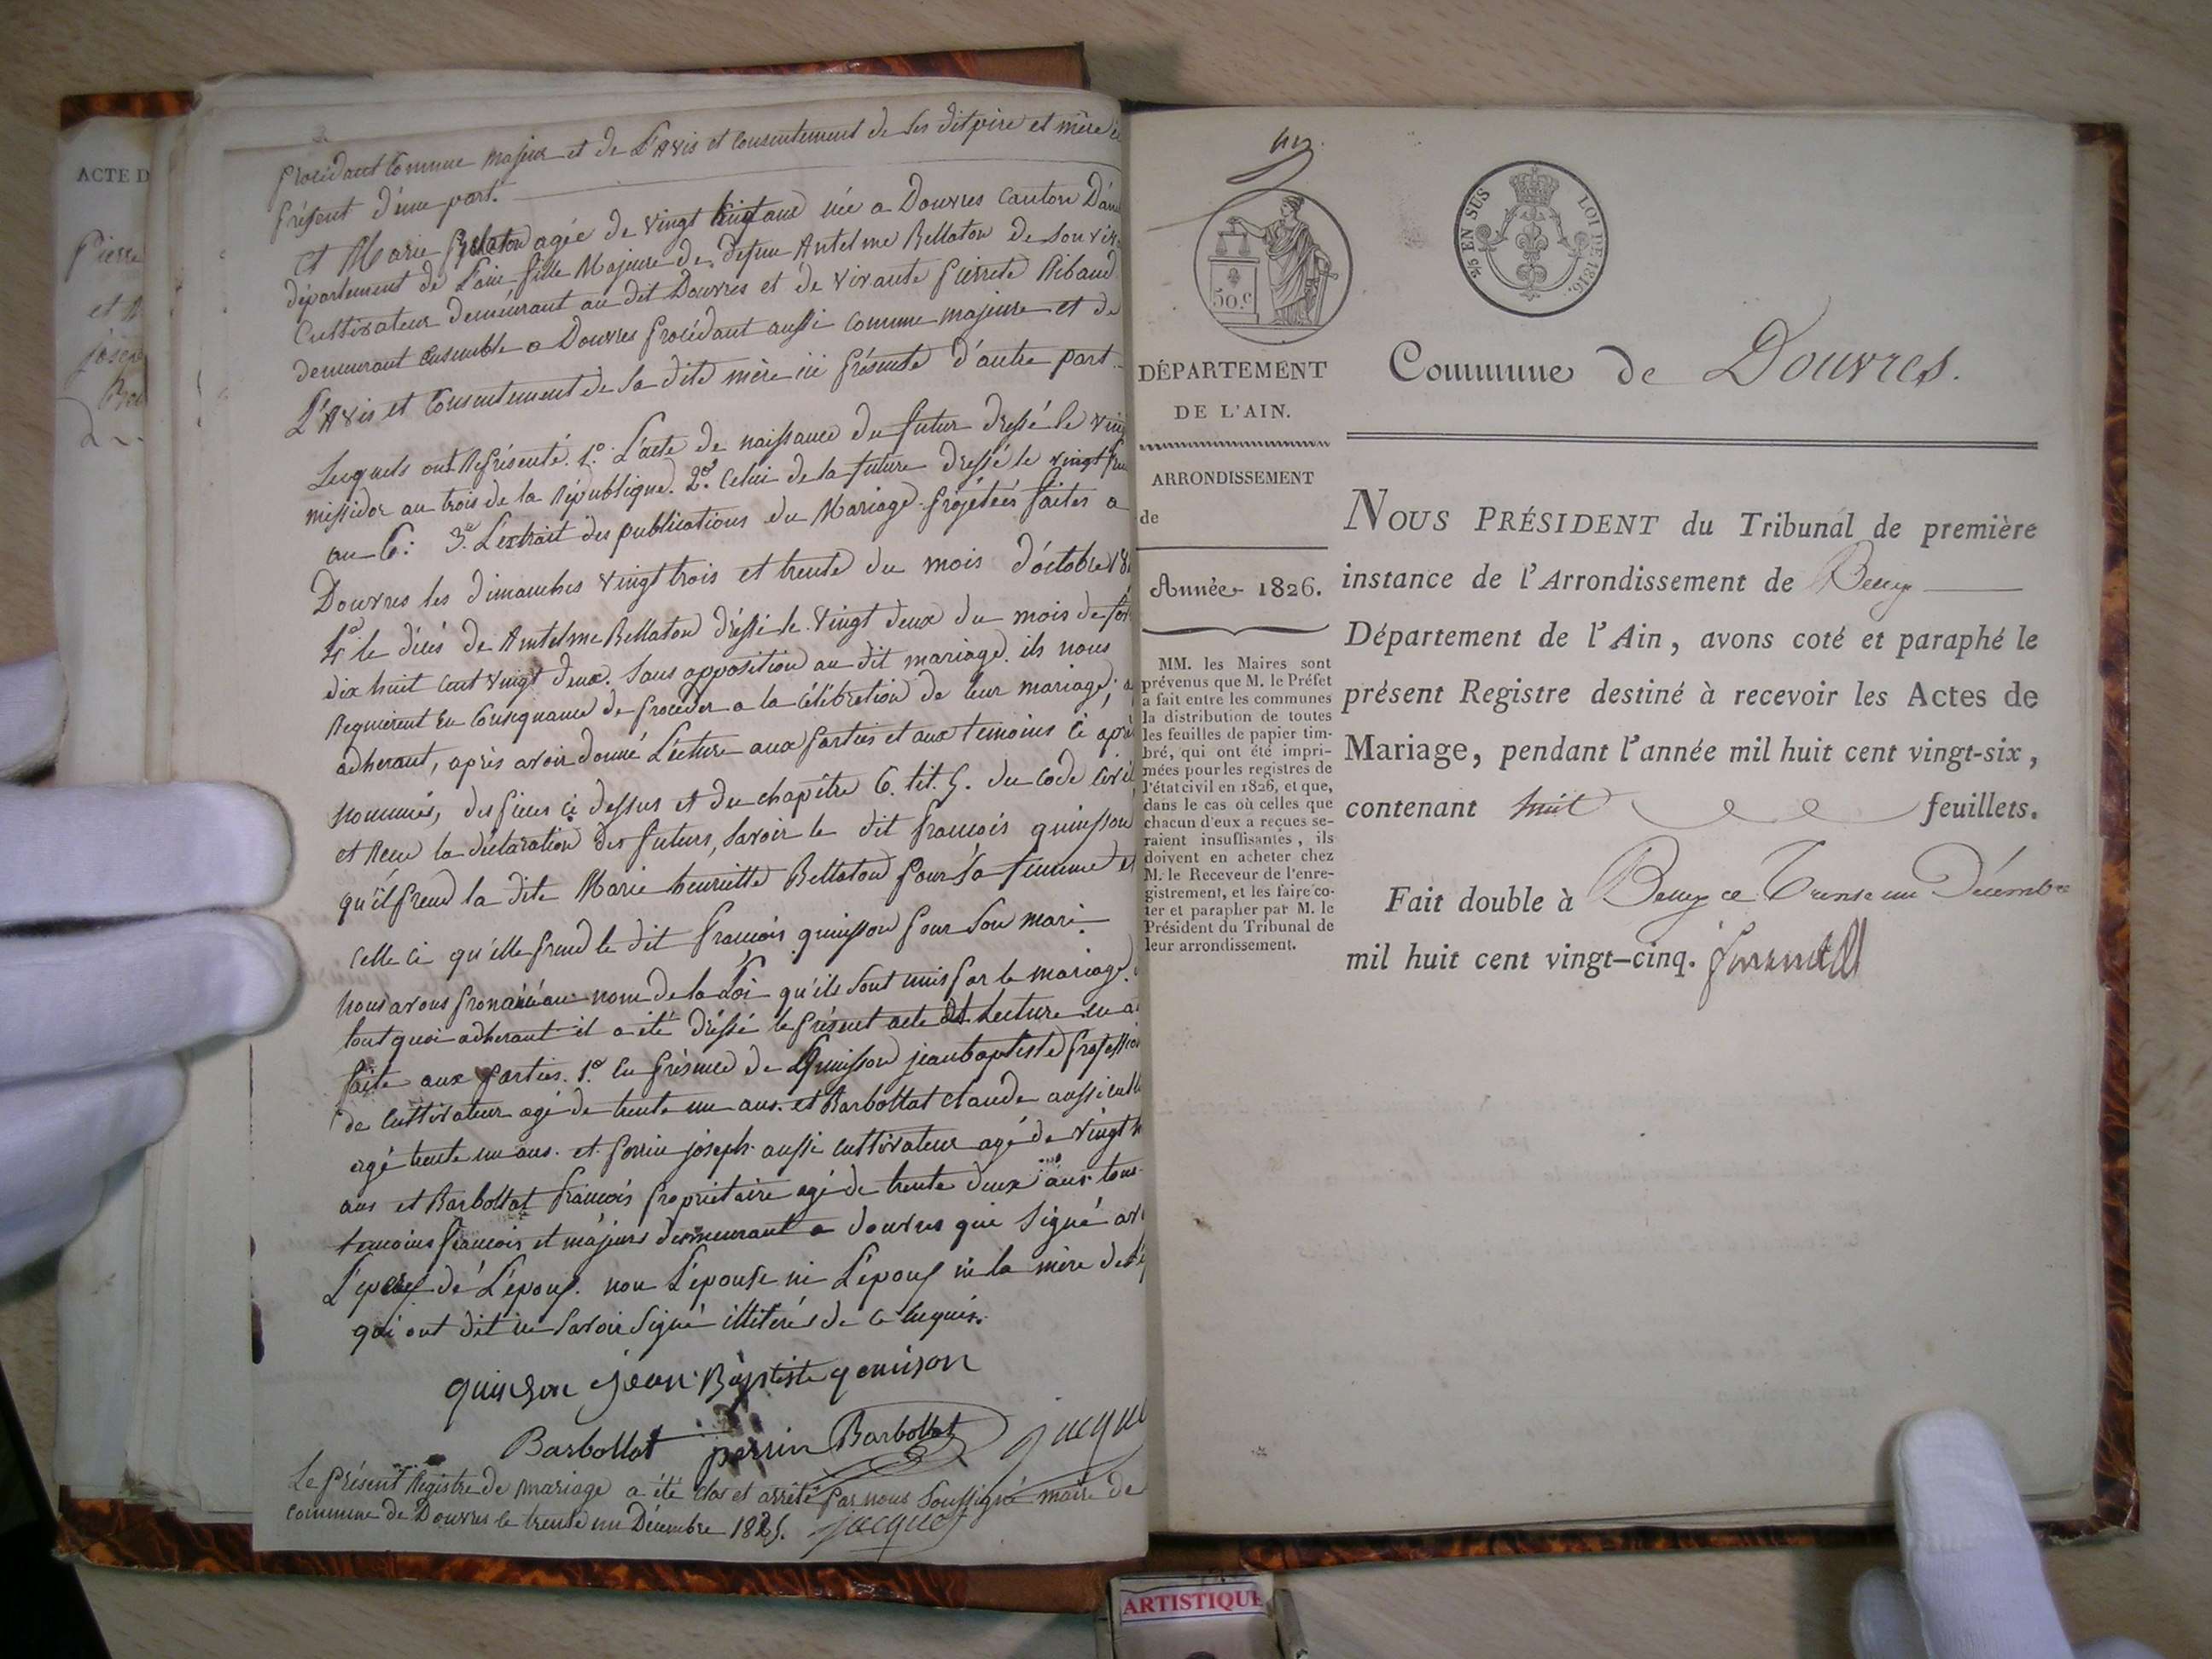 ACTE D
Pierre
et
joseph
procédant Comme majeur et de L'Avis et consentement de ses dit père et mère
présent d'une part.
et Marie agée de vingt ans née a Douvres Canton
département de L'ain fille Majeure de defun Antelme Bellaton de son
Cultivateur demeurant au dit Douvres et de vivante pierrete Ribaud
demeurant ensemble a Douvres procédant aussi comme majeure et de
L'Avis et Consentement de sa dite mère ici présente d'autre part.
Lesquels ont Représenté. 1o. L'acte de naissance du futur dressé le
messidor an trois de la République. 2o. Celui de la future dressé le vingt
an 6: 3o. L'extrait des publications du Mariage projétées faites a
Douvres les dimanches vingt trois et trente du mois d'octobre
4o le décès de Antelme Bellaton dressé le vingt deux du mois de
dix huit cent vingt deux. Sans opposition au dit mariage. ils nous
Requierent En Consequance de proceder a la Célébration de leur mariage;
adherant, après avoir donné Lecture aux parties et aux temoins ci
nommés, des pieces ci dessus et du chapitre 6. tit. 5. du Code Civil
et Recu la déclaration des futurs, Savoir le dit francois quinson
qu'il prend la dite Marie henriette Bellaton pour sa femme et
celle ci qu'elle prend le dit francois quinson pour son mari.
Nous avons prononcé au nom de la Loi qu'ils sont unis par le mariage.
tout quoi adherant il a été dréssé le présent acte et Lecture en a
faite aux parties. 1o En présence de quinson jean baptiste profession
de Cultivateur agé de trente un ans. et Barbollat Claude aussi
agé trente un ans. et perrin joseph aussi cultivateur agé de vingt
ans et Barbollat francois proprietaire agé de trente deux ans tous
temoins francois et májeurs demeurant a Douvres qui Signé
de L'époux. non L'épouse ni L'époux ni la mère de
qui ont dit ne savoir Signé illitérés de ce Requis.
quinson jean Baptiste quinson
Barbollat perrin Barbollat jacque
Le présent Registre de mariage a été clos et arrêté par nous Soussigné maire de
Commune de Douvres le trente un Décembre 1825. jacque
50.c
2/5 EN SUS LOI DE 1816.
DÉPARTEMENT
DE L'AIN.
ARRONDISSEMENT
de
Année 1826.
MM. les Maires sont
prévenus que M. le Préfet
a fait entre les communes
la distribution de toutes
les feuilles de papier tim-
bré, qui ont été impri-
mées pour les registres de
l'état civil en 1826, et que,
dans le cas où celles que
chacun d'eux a reçues se-
raient insuffisantes, ils
doivent en acheter chez
M. le Receveur de l'enre-
gistrement, et les faire co-
ter et parapher par M. le
Président du Tribunal de
leur arrondissement.
Commune de Douvres.
NOUS PRÉSIDENT du Tribunal de première
instance de l'Arrondissement de Belley
Département de l'Ain, avons coté et paraphé le
présent Registre destiné à recevoir les Actes de
Mariage, pendant l'année mil huit cent vingt-six,
contenant huit feuillets.
Fait double à Belley ce Trente un Décembre
mil huit cent vingt-cinq.
ARTISTIQUE